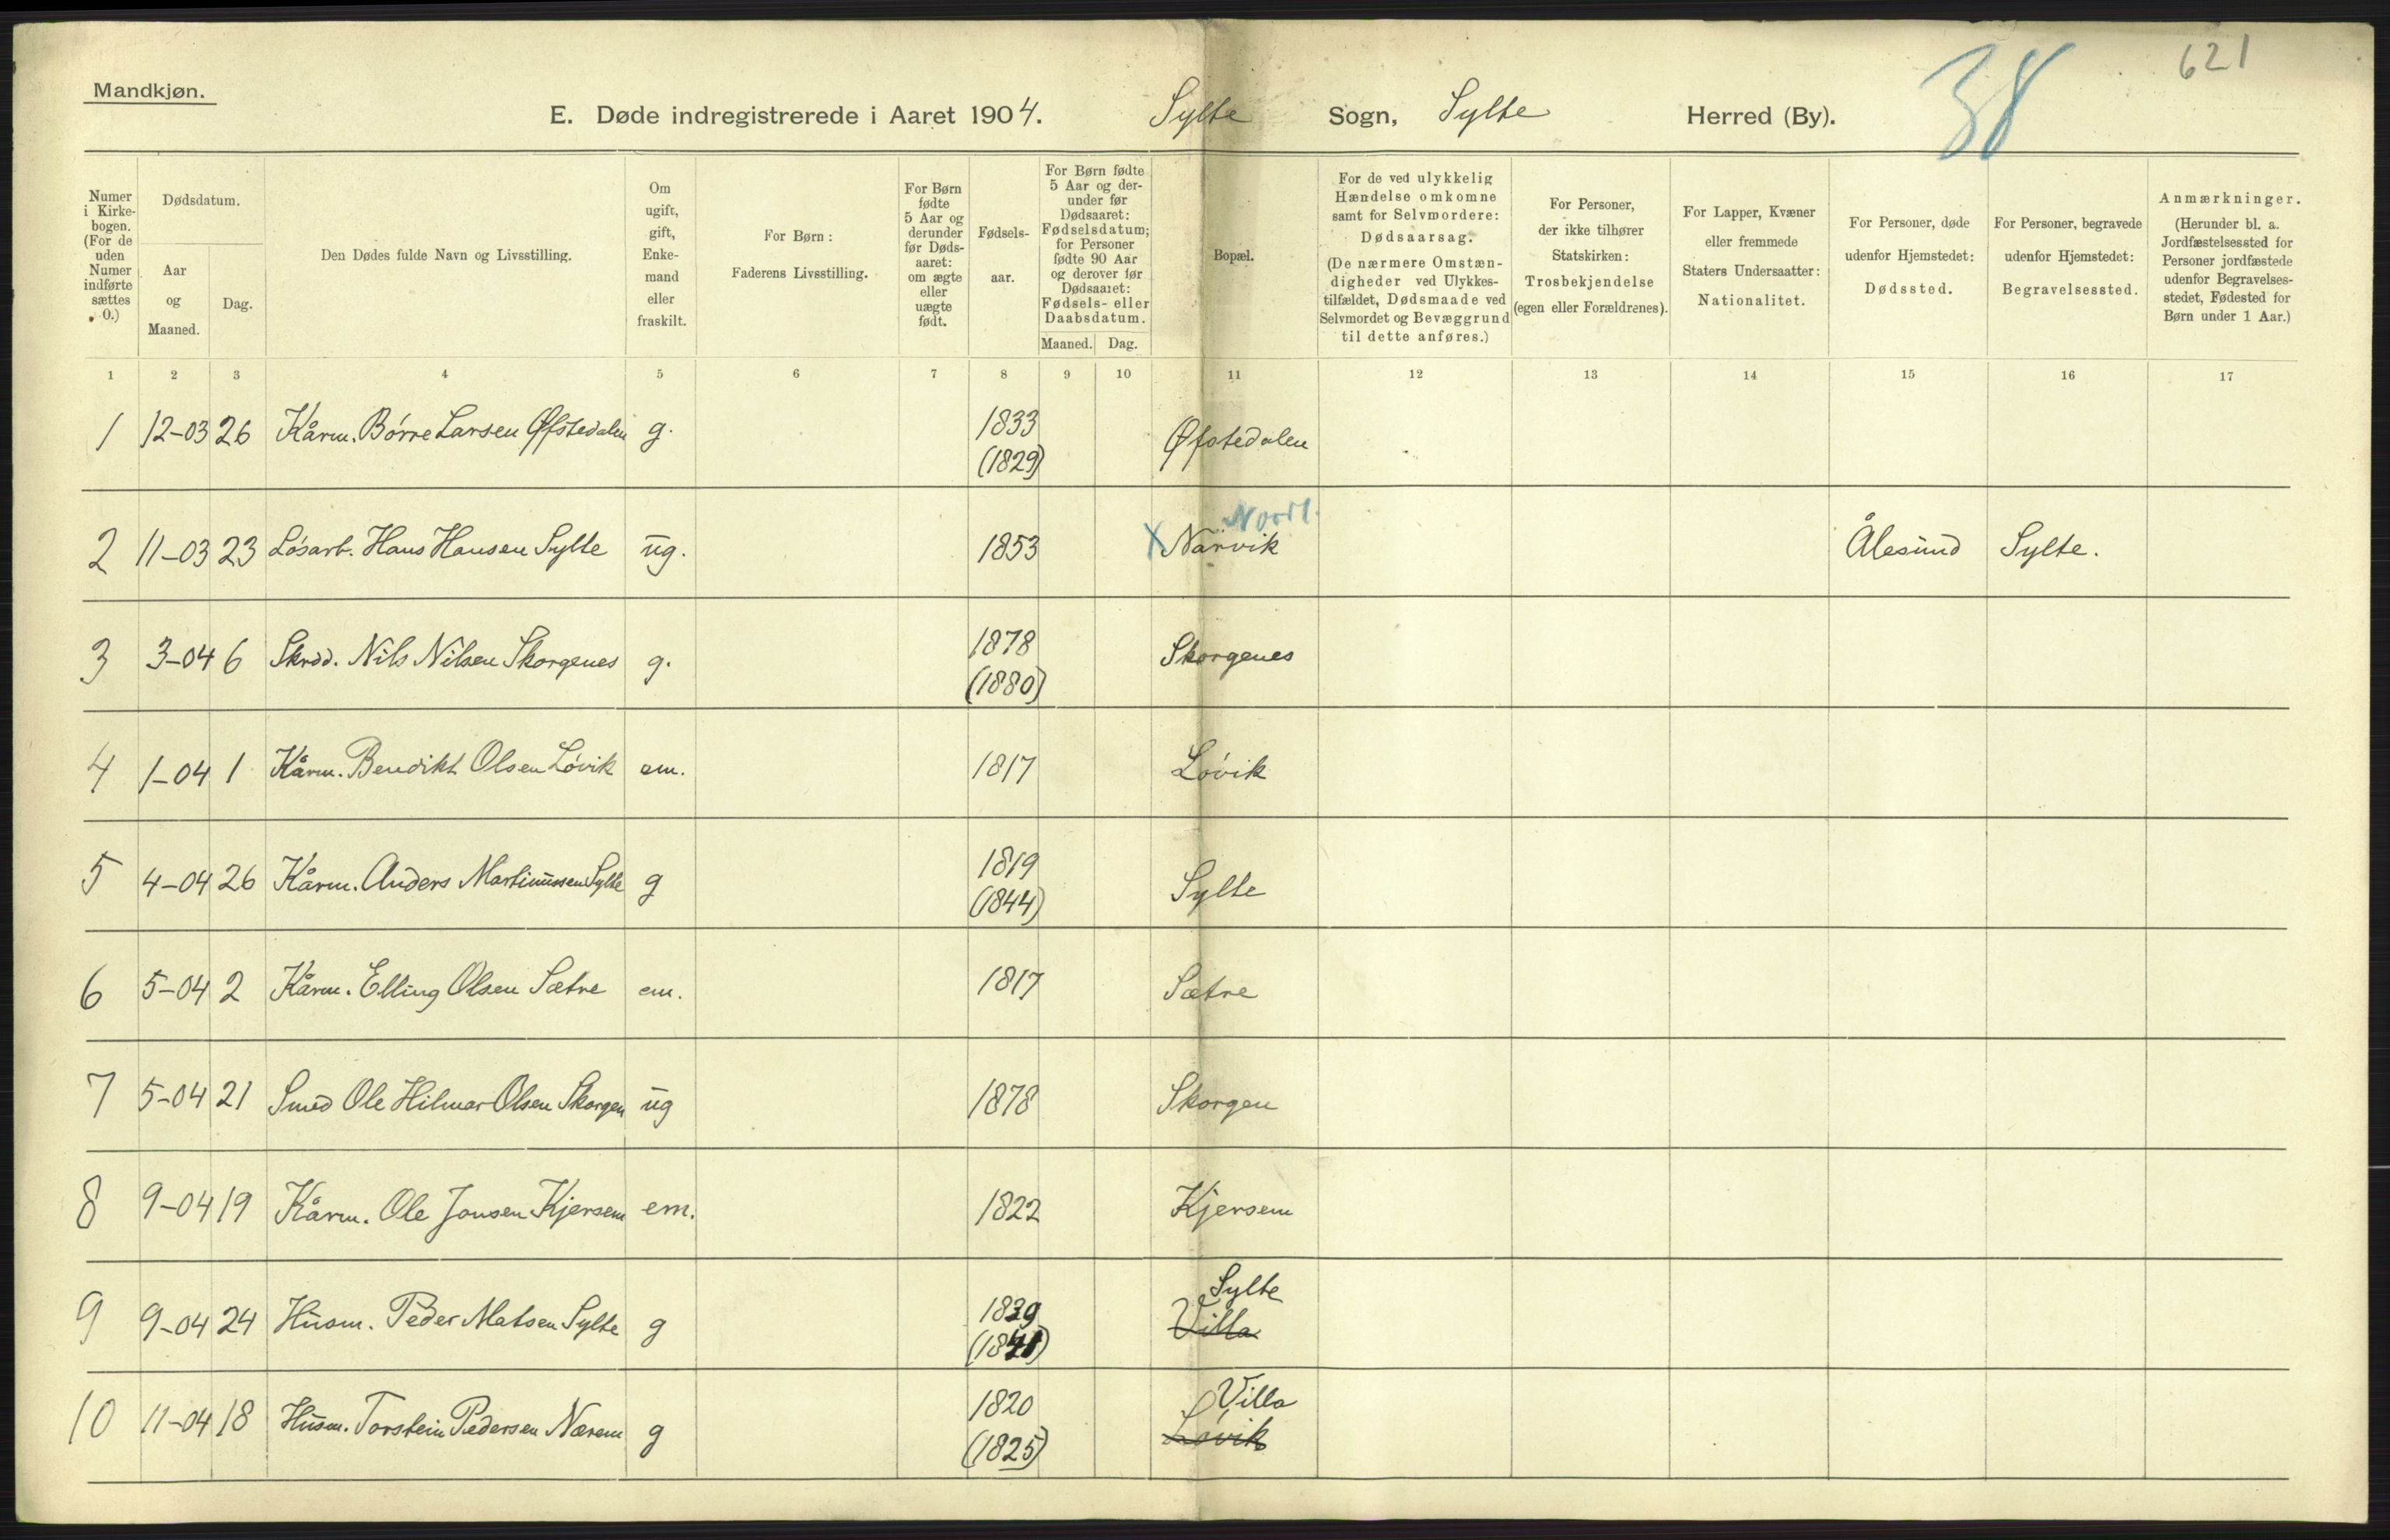 Mandkjøn.
38
621
E. Døde indregistrerede i Aaret 1904. Sylte Sogn, Sylte Herred (By).
Numer i Kirke-bogen. (For de uden Numer indførte sættes 0.)
Dødsdatum.
Aar og Maaned.
Dag.
Den Dødes fulde Navn og Livsstilling.
Om ugift, gift, Enke-mand eller fraskilt.
For Børn: Faderens Livsstilling.
For Børn fødte 5 Aar og derunder før Døds-aaret: om ægte eller uægte født.
Fødsels-aar.
For Børn fødte 5 Aar og der-under før Dødsaaret: Fødselsdatum; for Personer fødte 90 Aar og derover før Dødsaaret: Fødsels- eller Daabsdatum.
Maaned. Dag.
Bopæl.
For de ved ulykkelig Hændelse omkomne samt for Selvmordere: Dødsaarsag. (De nærmere Omstæn-digheder ved Ulykkes-tilfældet, Dødsmaade ved Selvmordet og Bevæggrund til dette anføres.)
For Personer, der ikke tilhører Statskirken: Trosbekjendelse (egen eller Forældrenes).
For Lapper, Kvæner eller fremmede Staters Undersaatter: Nationalitet.
For Personer, døde udenfor Hjemstedet: Dødssted.
For Personer, begravede udenfor Hjemstedet: Begravelsessted.
Anmærkninger. (Herunder bl. a. Jordfæstelsessted for Personer jordfæstede udenfor Begravelses-stedet, Fødested for Børn under 1 Aar.)
1 2 3 4 5 6 7 8 9 10 11 12 13 14 15 16 17
1 12-03 26 Kårm. Børre Larsen Øfstedalen g. 1833 (1829) Øfstedalen
Nordl.
2 11-03 23 Løsarb. Hans Hansen Sylte ug. 1853 X Narvik Ålesund Sylte.
3 3-04 6 Skrdd. Nils Nilsen Skorgenes g. 1878 (1880) Skorgenes
4 1-04 1 Kårm. Bendikt Olsen Løvik em. 1817 Løvik
5 4-04 26 Kårm. Anders Martinussen Sylte g 1819 (1844) Sylte
6 5-04 2 Kårm. Elling Olsen Sætre em. 1817 Sætre
7 5-04 21 Smed Ole Hilmar Olsen Skorgen ug 1878 Skorgen
8 9-04 19 Kårm. Ole Jonsen Kjersem em. 1822 Kjersem
Sylte
9 9-04 24 Husm. Peder Matsen Sylte g 1839 (1841) Villa
Villa
10 11-04 18 Husm. Torstein Pedersen Nærem g 1820 (1825) Løvik